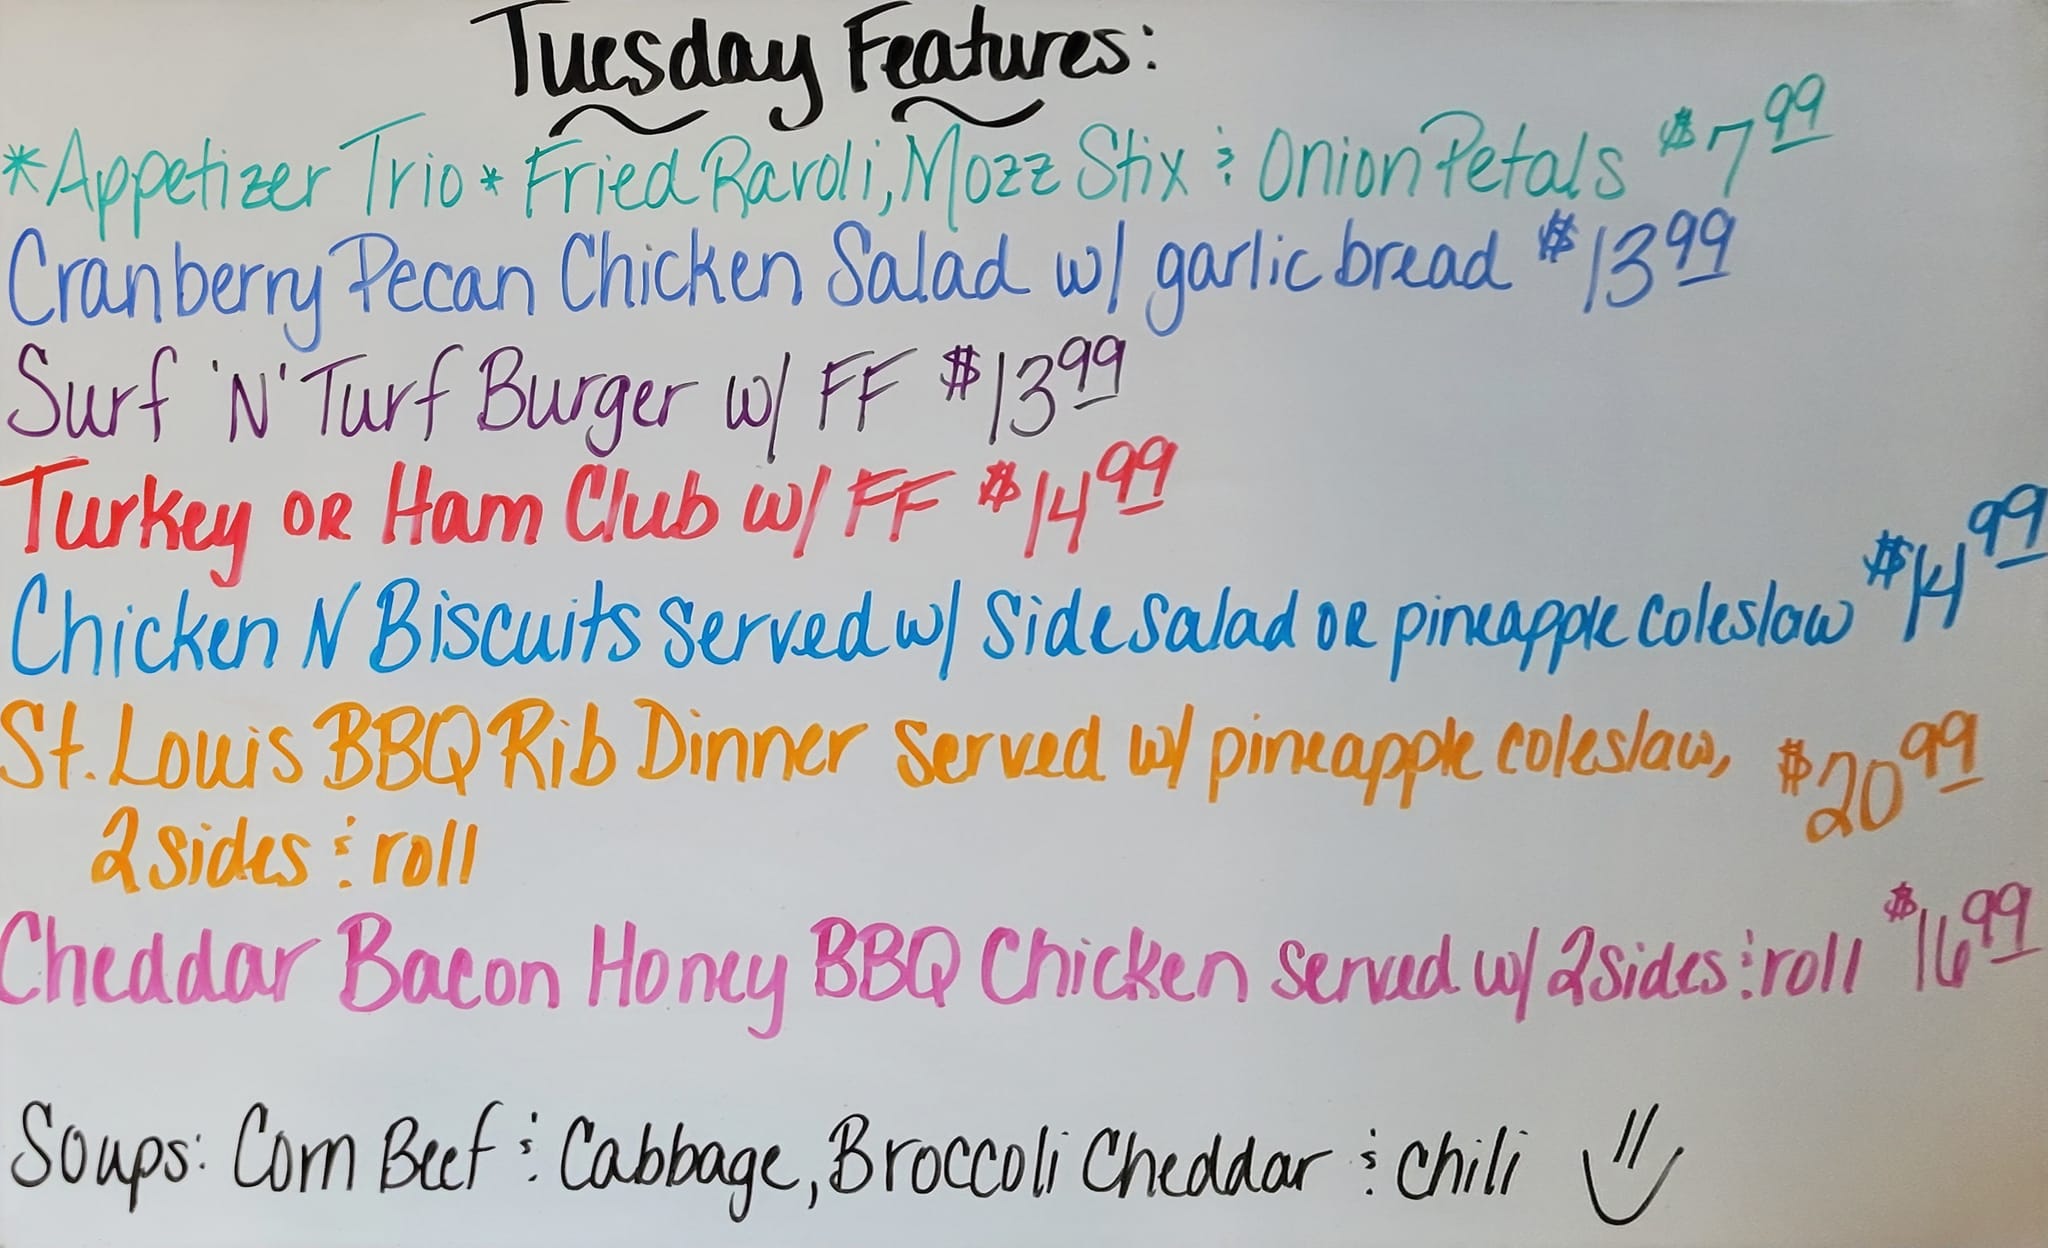 Tuesday Features:
*Appetizer Trio* Fried Ravoli, Mozz Stix & Onion Petals $7.99
Cranberry Pecan Chicken Salad w/ garlic bread $13.99
Surf 'N' Turf Burger w/ FF $13.99
Turkey OR Ham Club w/ FF $14.99
Chicken N Biscuits Served w/ Side Salad OR pineapple coleslaw $14.99
St. Louis BBQ Rib Dinner Served w/ pineapple coleslaw, $20.99
2 sides & roll
Cheddar Bacon Honey BBQ Chicken Served w/ 2 sides & roll $16.99
Soups: Corn Beef & Cabbage, Broccoli Cheddar & Chili